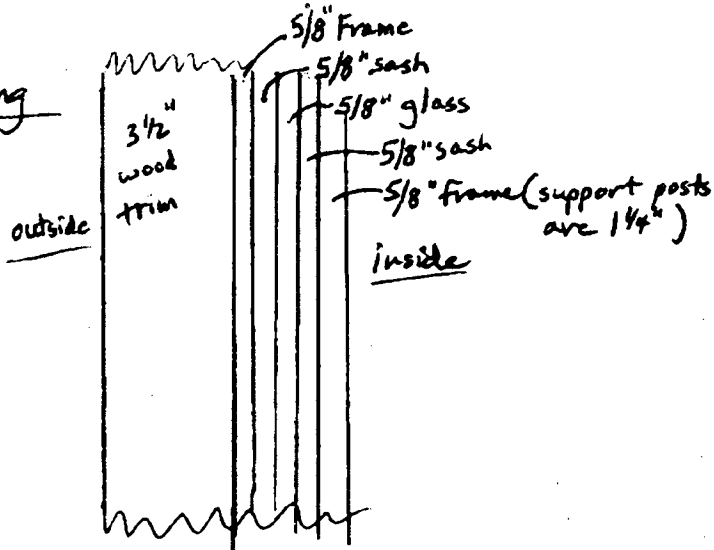 5/8" Frame
5/8" sash
5/8" glass
5/8" sash
5/8" frame (support posts
are 1 1/4")
3 1/2"
wood
trim
outside
inside